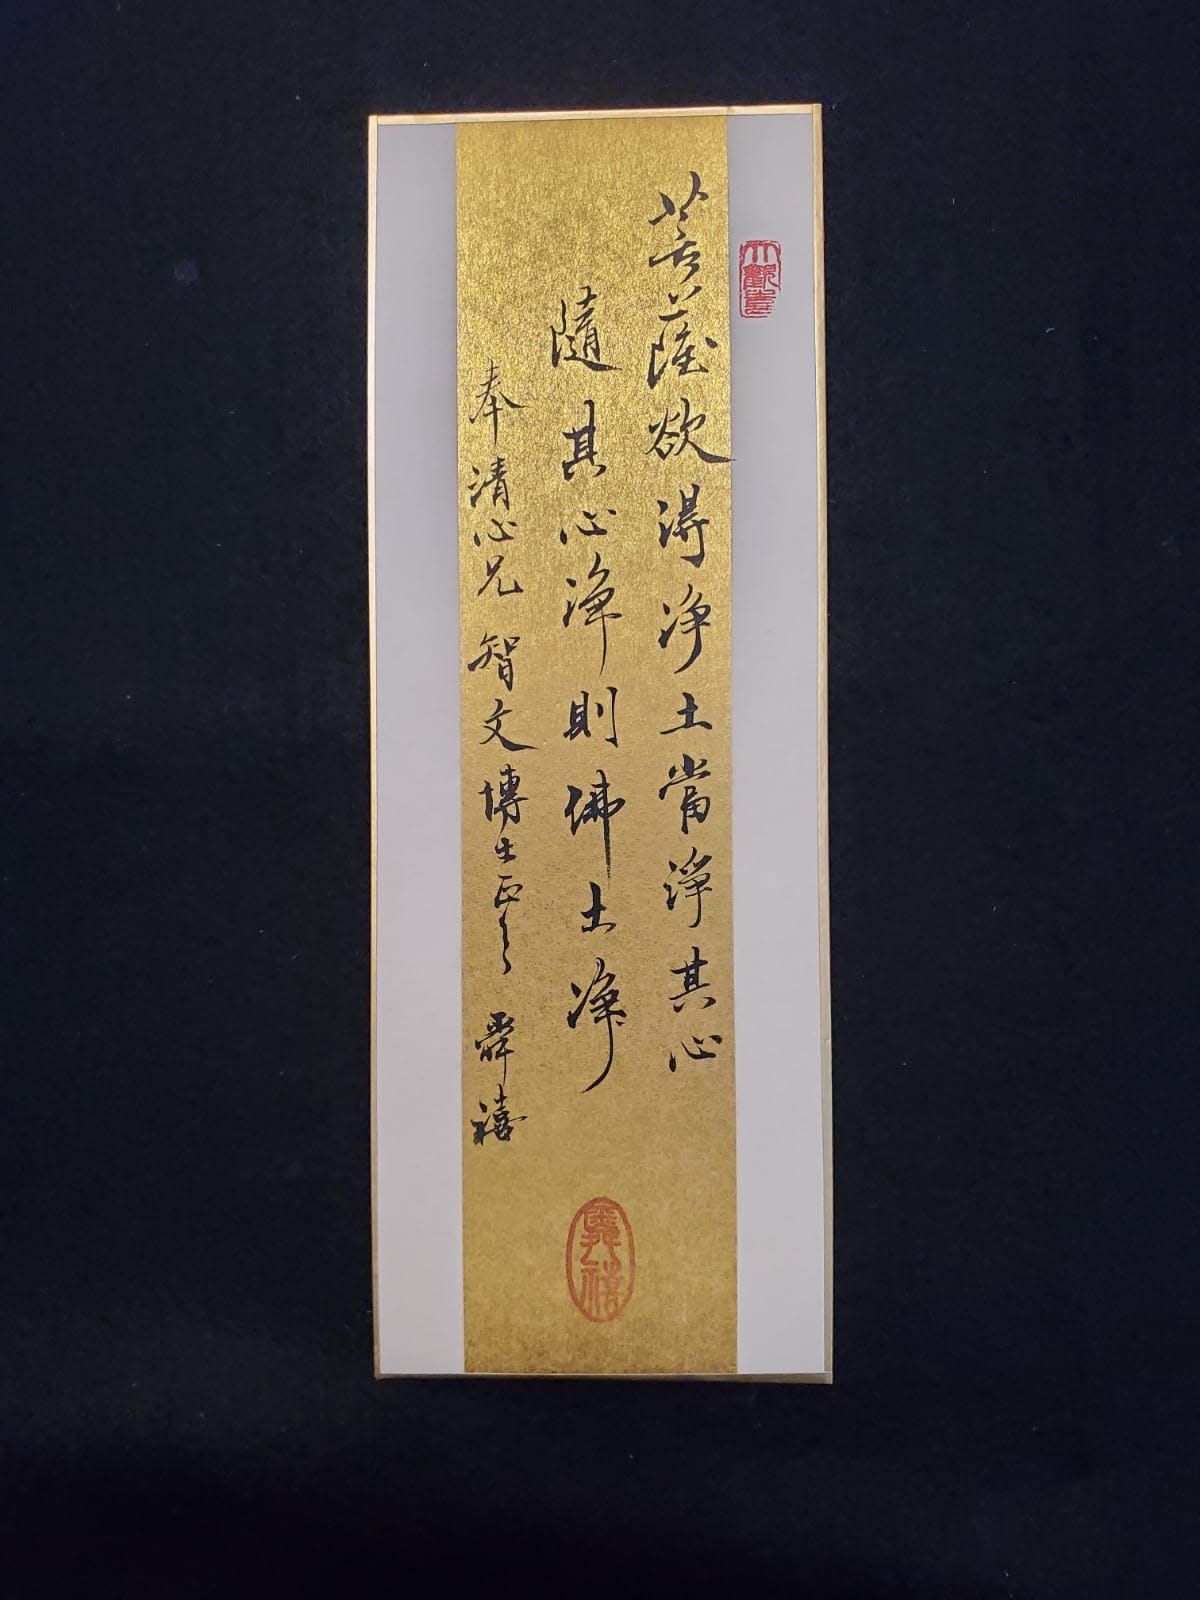 菩薩欲得淨土當淨其心
隨其心淨則佛土淨
奉清心兄智文博士正之 舜禧
舜禧